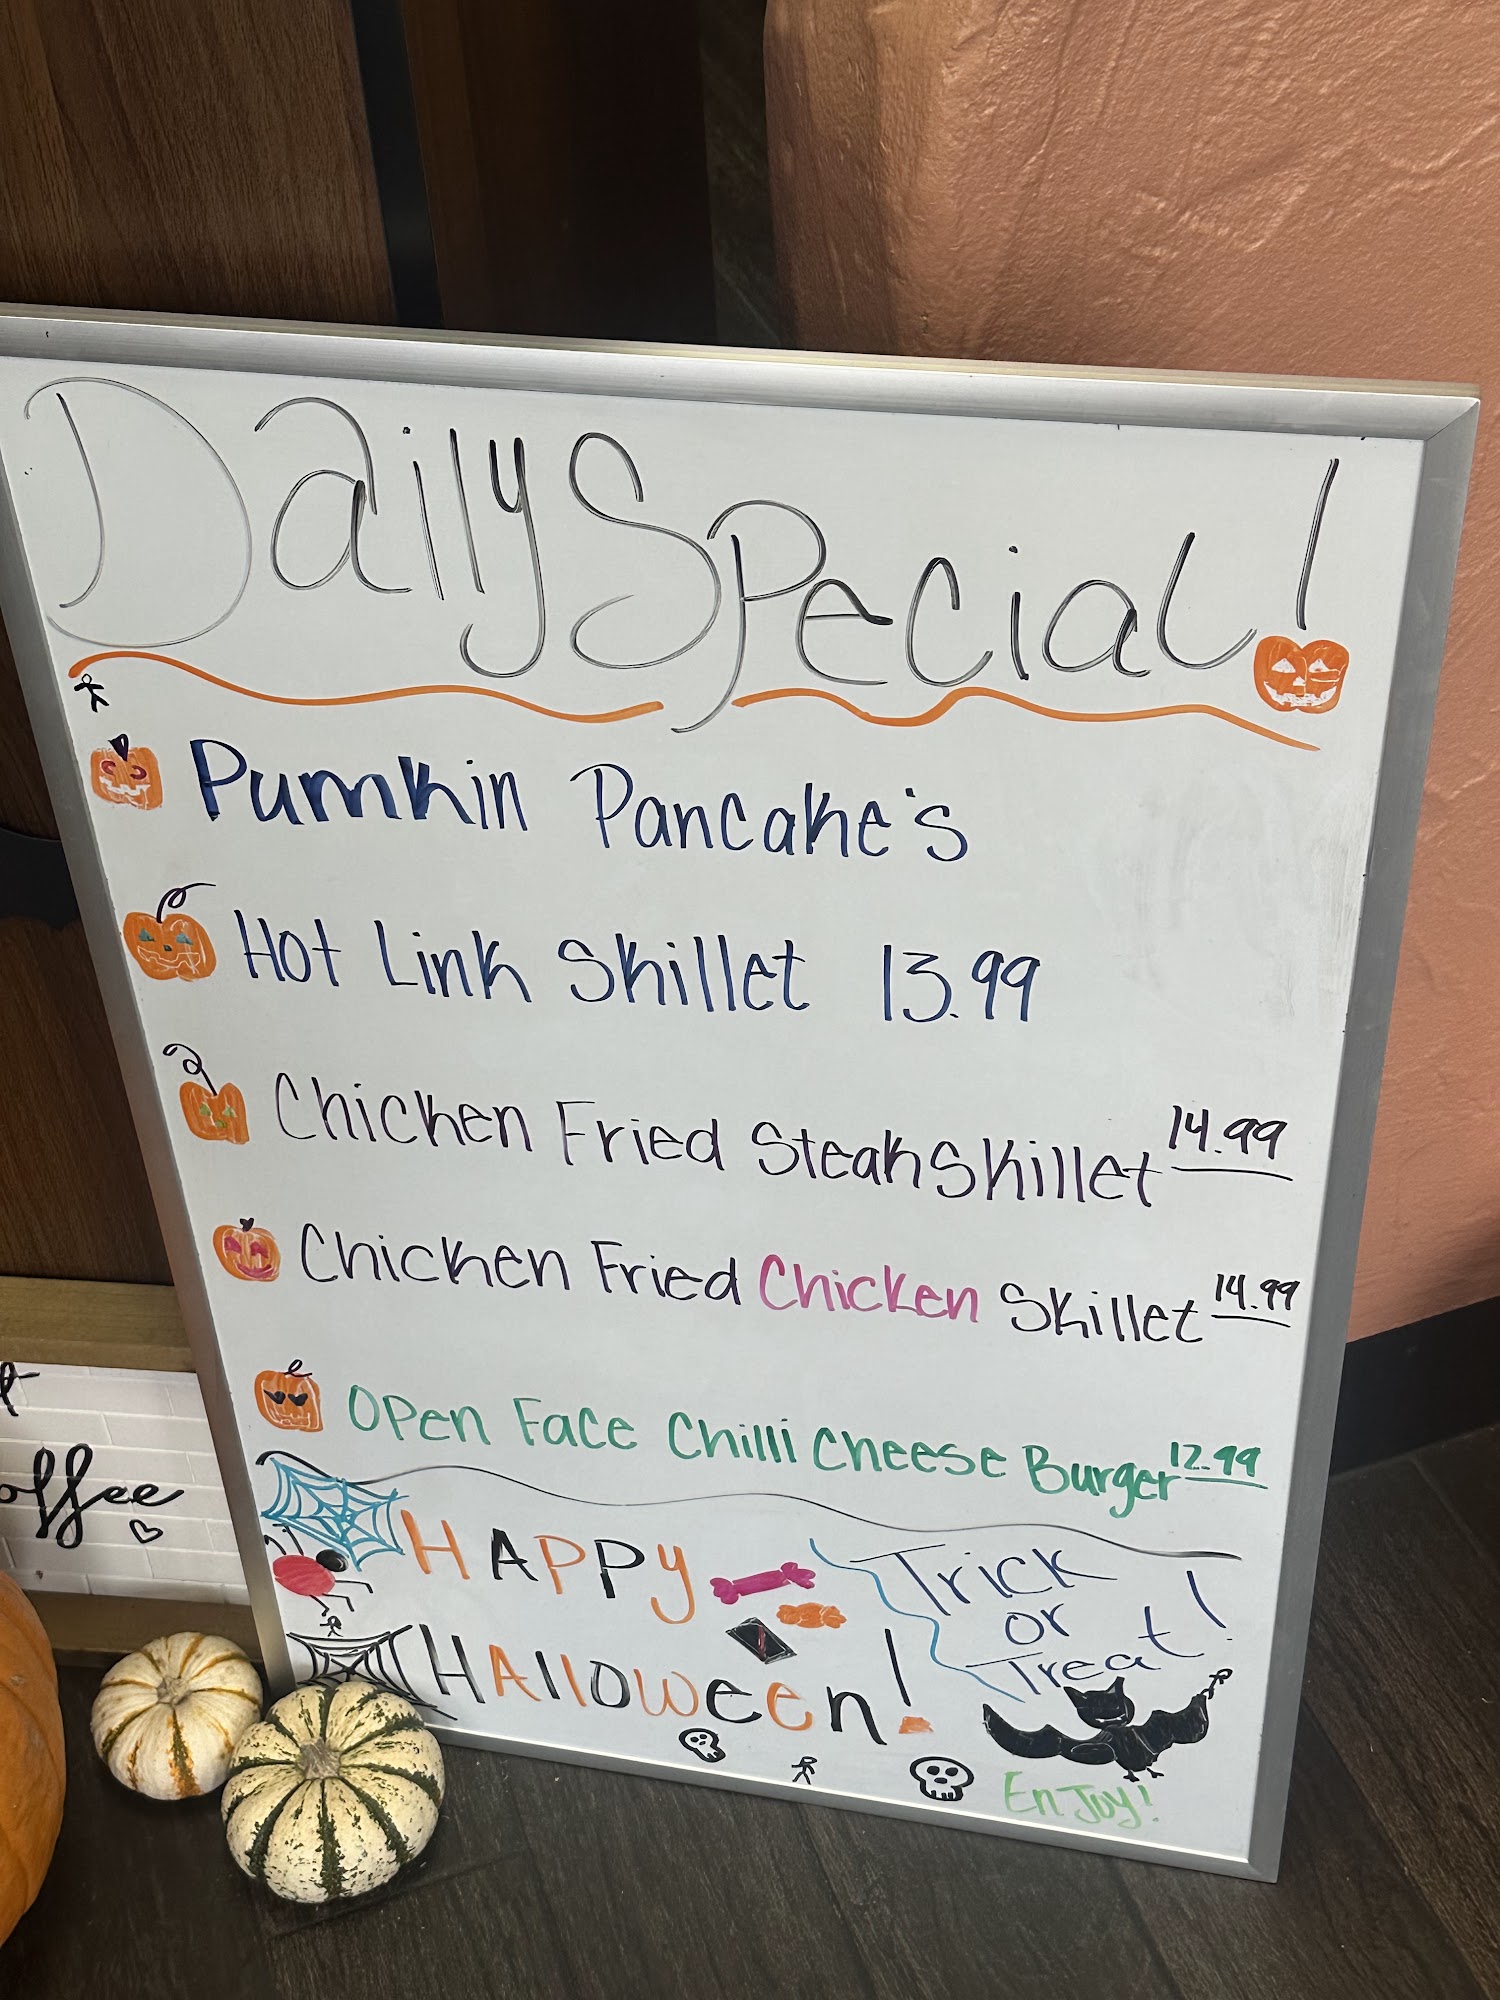 Daily Special!
Pumkin Pancake's
Hot Link Skillet 13.99
Chicken Fried Steak Skillet 14.99
Chicken Fried Chicken Skillet 14.99
Open Face Chilli Cheese Burger 12.99
Happy
Halloween!
Trick
or
Treat!
Enjoy!